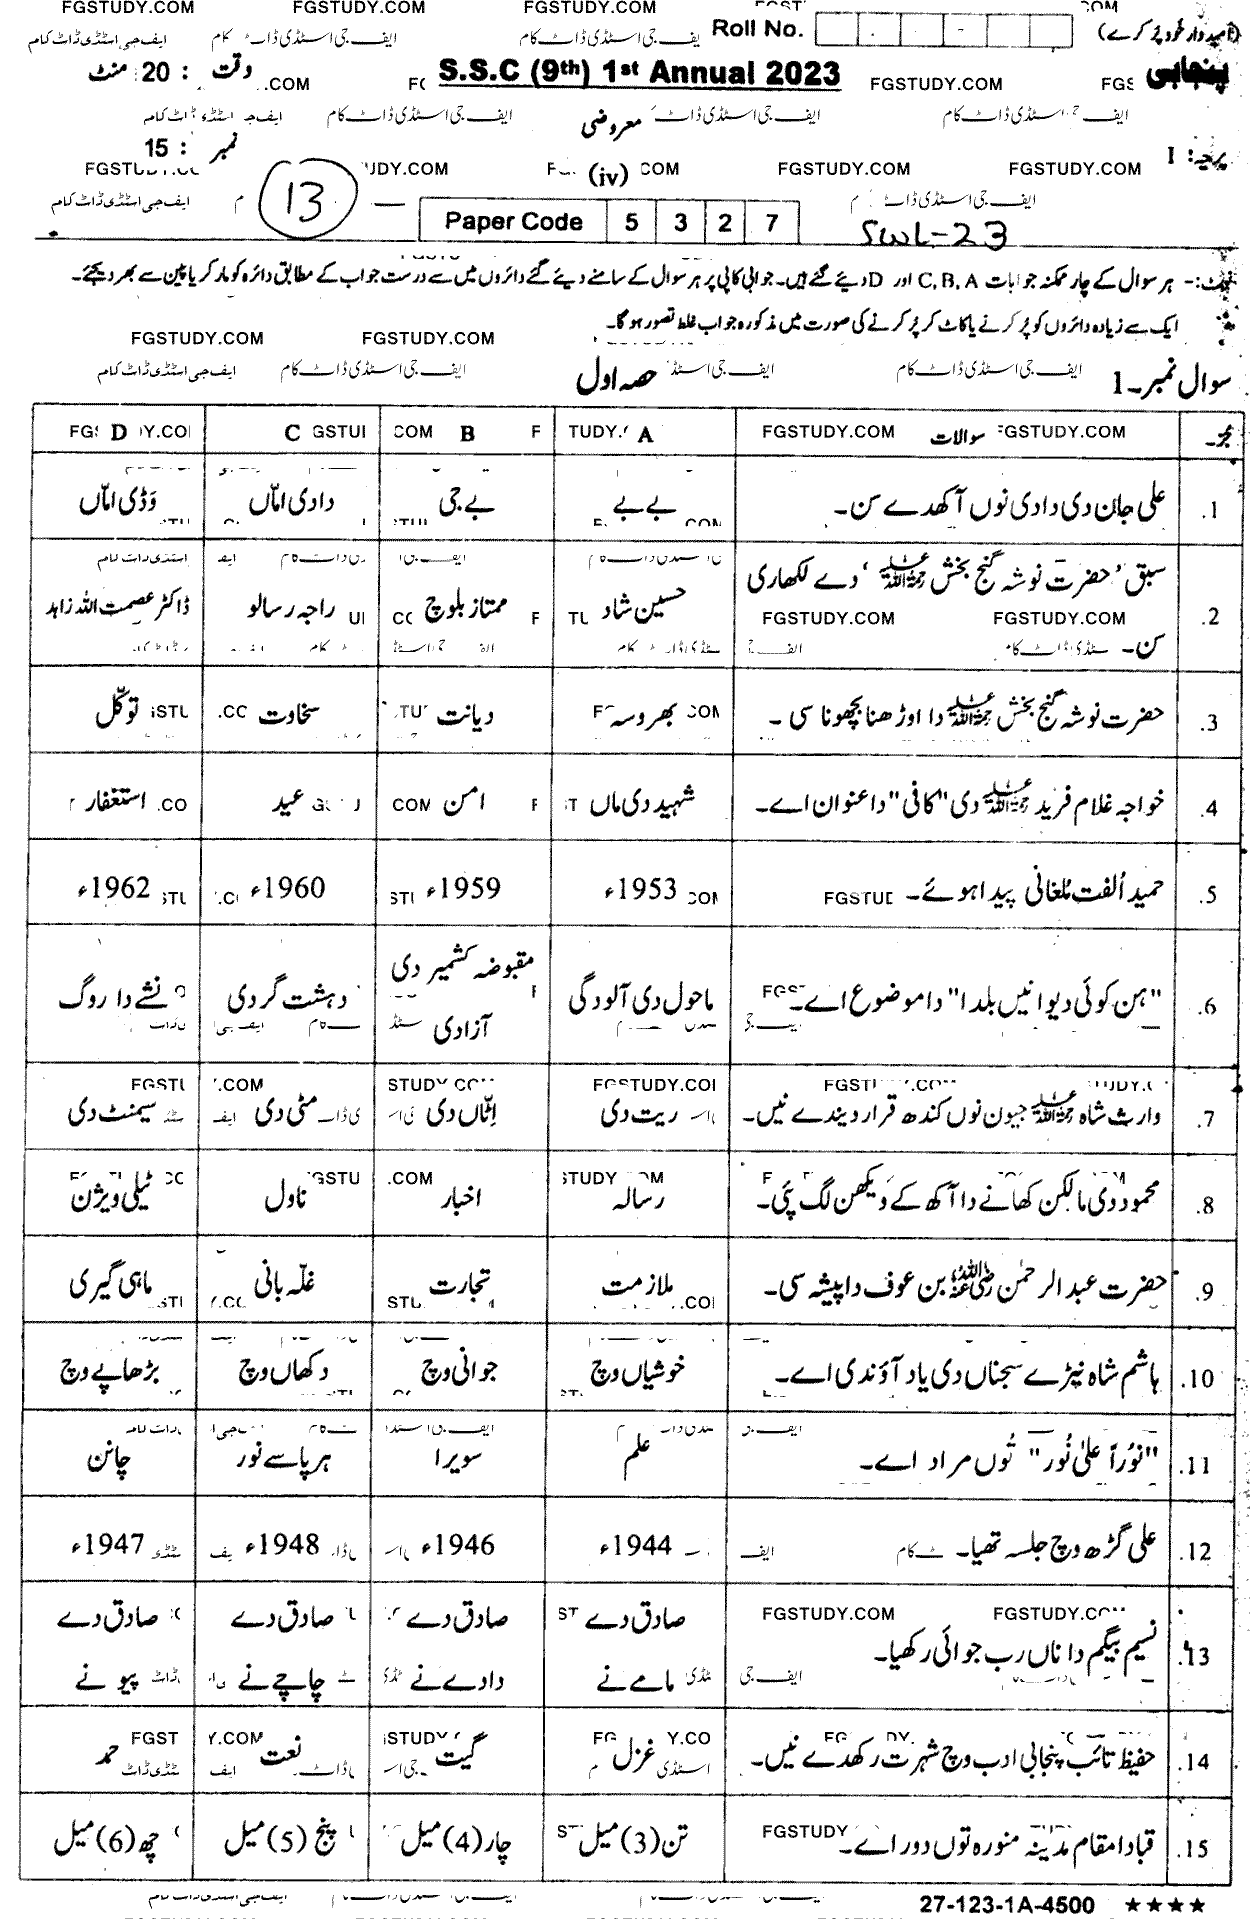 Roll No.
(امیدوار خود پُر کرے)
پنجابی
S.S.C (9th) 1st Annual 2023
وقت : 20 منٹ
معروضی
پرچہ: I
نمبر : 15
(iv)
13
Paper Code 5 3 2 7
SWL-23
نوٹ:- ہر سوال کے چار ممکنہ جوابات C, B, A اور D دیئے گئے ہیں۔ جوابی کاپی پر ہر سوال کے سامنے دیئے گئے دائروں میں سے درست جواب کے مطابق دائرہ کو مارکر یا پین سے بھر دیجئے۔
ایک سے زیادہ دائروں کو پُر کرنے یا کاٹ کر پُر کرنے کی صورت میں مذکورہ جواب غلط تصور ہو گا۔
سوال نمبر۔1 حصہ اول
سوالات A B C D
1. علی جان دی دادی نوں آکھدے سن۔ بے بے بے جی دادی امّاں وَڈی امّاں
2. سبق 'حضرت نوشہ گنج بخش رحمۃ اللہ علیہ' دے لکھاری سن۔ حسین شاد ممتاز بلوچ راجہ رسالو ڈاکٹر عصمت اللہ زاہد
3. حضرت نوشہ گنج بخش رحمۃ اللہ علیہ دا اوڑھنا بچھونا سی ۔ بھروسہ دیانت سخاوت توکّل
4. خواجہ غلام فرید رحمۃ اللہ علیہ دی "کافی" دا عنوان اے۔ شہید دی ماں امن عید استغفار
5. حمید اُلفت مُلغانی پیدا ہوئے۔ 1953ء 1959ء 1960ء 1962ء
6. "ہن کوئی دیوا نیں بلدا" دا موضوع اے۔ ماحول دی آلودگی مقبوضہ کشمیر دی آزادی دہشت گردی نشے دا روگ
7. وارث شاہ رحمۃ اللہ علیہ جیون نوں کندھ قرار دیندے نیں۔ ریت دی اِٹّاں دی مٹی دی سیمنٹ دی
8. محمود دی مالکن کھانے دا آکھ کے ویکھن لگ پئی۔ رسالہ اخبار ناول ٹیلی ویژن
9. حضرت عبدالرحمٰن رضی اللہ عنہ بن عوف دا پیشہ سی۔ ملازمت تجارت غلّہ بانی ماہی گیری
10. ہاشم شاہ نیڑے سجناں دی یاد آؤندی اے۔ خوشیاں وچ جوانی وچ دکھاں وچ بڑھاپے وچ
11. "نُوراً علیٰ نُور" تُوں مراد اے۔ علم سویرا ہر پاسے نور چانن
12. علی گڑھ وچ جلسہ تھیا۔ 1944ء 1946ء 1948ء 1947ء
13. نسیم بیگم دا ناں رب جوائی رکھیا۔ صادق دے مامے نے صادق دے دادے نے صادق دے چاچے نے صادق دے پیو نے
14. حفیظ تائب پنجابی ادب وچ شہرت رکھدے نیں۔ غزل گیت نعت حمد
15. قبا دا مقام مدینہ منورہ توں دور اے۔ تن(3)میل چار(4)میل پنج(5)میل چھ(6)میل
27-123-1A-4500 ★★★★